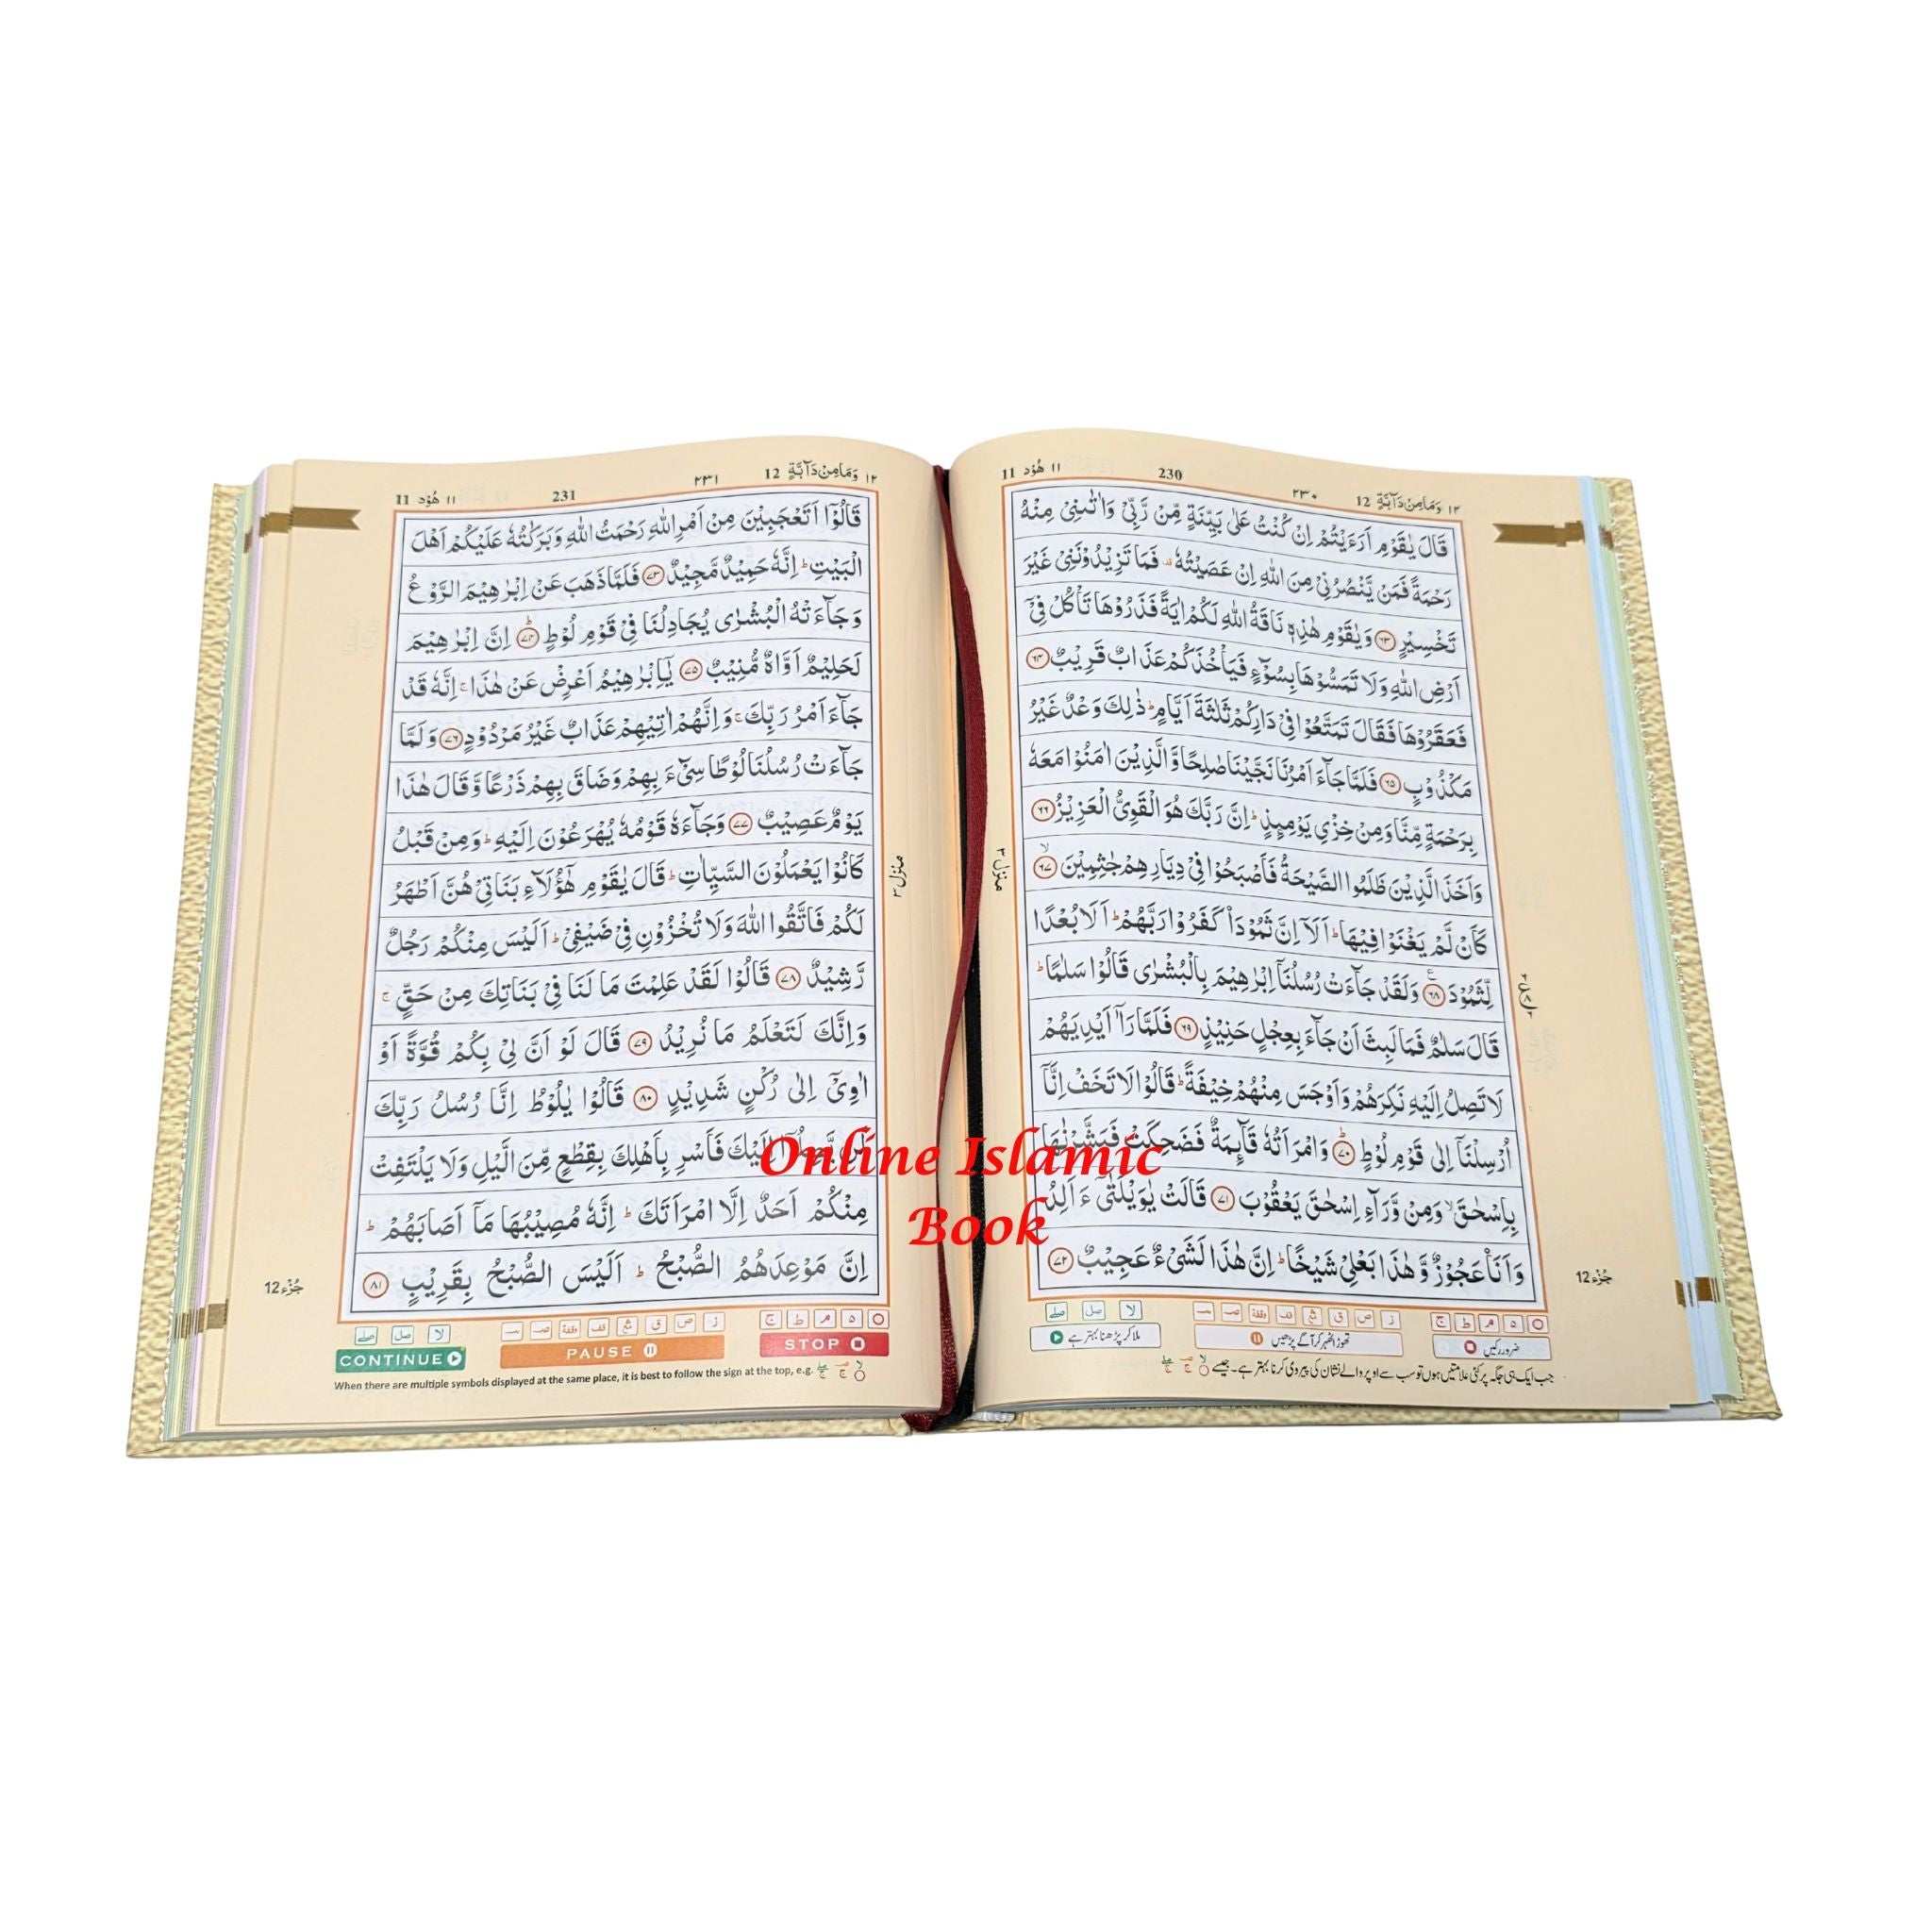 ١٢ وَمَا مِنْ دَآبَّةٍ 12
٢٣٠
230
١١ هُوْد 11
قَالَ يٰقَوْمِ اَرَءَيْتُمْ اِنْ كُنْتُ عَلٰى بَيِّنَةٍ مِّنْ رَّبِّيْ وَاٰتٰىنِيْ مِنْهُ
رَحْمَةً فَمَنْ يَّنْصُرُنِيْ مِنَ اللّٰهِ اِنْ عَصَيْتُهٗ ۗ فَمَا تَزِيْدُوْنَنِيْ غَيْرَ
تَخْسِيْرٍ ﴿٦٣﴾ وَيٰقَوْمِ هٰذِهٖ نَاقَةُ اللّٰهِ لَكُمْ اٰيَةً فَذَرُوْهَا تَاْكُلْ فِيْۤ
اَرْضِ اللّٰهِ وَلَا تَمَسُّوْهَا بِسُوْٓءٍ فَيَاْخُذَكُمْ عَذَابٌ قَرِيْبٌ ﴿٦٤﴾
فَعَقَرُوْهَا فَقَالَ تَمَتَّعُوْا فِيْ دَارِكُمْ ثَلٰثَةَ اَيَّامٍ ؕ ذٰلِكَ وَعْدٌ غَيْرُ
مَكْذُوْبٍ ﴿٦٥﴾ فَلَمَّا جَآءَ اَمْرُنَا نَجَّيْنَا صٰلِحًا وَّالَّذِيْنَ اٰمَنُوْا مَعَهٗ
بِرَحْمَةٍ مِّنَّا وَمِنْ خِزْيِ يَوْمِىِٕذٍ ؕ اِنَّ رَبَّكَ هُوَ الْقَوِيُّ الْعَزِيْزُ ﴿٦٦﴾
وَاَخَذَ الَّذِيْنَ ظَلَمُوا الصَّيْحَةُ فَاَصْبَحُوْا فِيْ دِيَارِهِمْ جٰثِمِيْنَ ﴿٦٧﴾ ۙ
كَاَنْ لَّمْ يَغْنَوْا فِيْهَا ؕ اَلَاۤ اِنَّ ثَمُوْدَا۟ كَفَرُوْا رَبَّهُمْ ؕ اَلَا بُعْدًا
لِّثَمُوْدَ ﴿٦٨﴾ وَلَقَدْ جَآءَتْ رُسُلُنَاۤ اِبْرٰهِيْمَ بِالْبُشْرٰى قَالُوْا سَلٰمًا ؕ
قَالَ سَلٰمٌ فَمَا لَبِثَ اَنْ جَآءَ بِعِجْلٍ حَنِيْذٍ ﴿٦٩﴾ فَلَمَّا رَاٰۤ اَيْدِيَهُمْ
لَا تَصِلُ اِلَيْهِ نَكِرَهُمْ وَاَوْجَسَ مِنْهُمْ خِيْفَةً ؕ قَالُوْا لَا تَخَفْ اِنَّاۤ
اُرْسِلْنَاۤ اِلٰى قَوْمِ لُوْطٍ ﴿٧٠﴾ ؕ وَامْرَاَتُهٗ قَآىِٕمَةٌ فَضَحِكَتْ فَبَشَّرْنٰهَا
بِاِسْحٰقَ ۙ وَمِنْ وَّرَآءِ اِسْحٰقَ يَعْقُوْبَ ﴿٧١﴾ قَالَتْ يٰوَيْلَتٰىۤ ءَاَلِدُ
وَاَنَا۠ عَجُوْزٌ وَّهٰذَا بَعْلِيْ شَيْخًا ؕ اِنَّ هٰذَا لَشَيْءٌ عَجِيْبٌ ﴿٧٢﴾
منزل ٣
جُزْء 12
ضرور رکیں
تھوڑا ٹھہر کر آگے پڑھیں
ملا کر پڑھنا بہتر ہے
جب ایک ہی جگہ پر کئی علامتیں ہوں تو سب سے اوپر والے نشان کی پیروی کرنا بہتر ہے۔ جیسے
١٢ وَمَا مِنْ دَآبَّةٍ 12
٢٣١
231
١١ هُوْد 11
قَالُوْۤا اَتَعْجَبِيْنَ مِنْ اَمْرِ اللّٰهِ رَحْمَتُ اللّٰهِ وَبَرَكٰتُهٗ عَلَيْكُمْ اَهْلَ
الْبَيْتِ ؕ اِنَّهٗ حَمِيْدٌ مَّجِيْدٌ ﴿٧٣﴾ فَلَمَّا ذَهَبَ عَنْ اِبْرٰهِيْمَ الرَّوْعُ
وَجَآءَتْهُ الْبُشْرٰى يُجَادِلُنَا فِيْ قَوْمِ لُوْطٍ ﴿٧٤﴾ ؕ اِنَّ اِبْرٰهِيْمَ
لَحَلِيْمٌ اَوَّاهٌ مُّنِيْبٌ ﴿٧٥﴾ يٰۤاِبْرٰهِيْمُ اَعْرِضْ عَنْ هٰذَا ۚ اِنَّهٗ قَدْ
جَآءَ اَمْرُ رَبِّكَ ۚ وَاِنَّهُمْ اٰتِيْهِمْ عَذَابٌ غَيْرُ مَرْدُوْدٍ ﴿٧٦﴾ وَلَمَّا
جَآءَتْ رُسُلُنَا لُوْطًا سِيْٓءَ بِهِمْ وَضَاقَ بِهِمْ ذَرْعًا وَّقَالَ هٰذَا
يَوْمٌ عَصِيْبٌ ﴿٧٧﴾ وَجَآءَهٗ قَوْمُهٗ يُهْرَعُوْنَ اِلَيْهِ ؕ وَمِنْ قَبْلُ
كَانُوْا يَعْمَلُوْنَ السَّيِّاٰتِ ؕ قَالَ يٰقَوْمِ هٰۤؤُلَآءِ بَنَاتِيْ هُنَّ اَطْهَرُ
لَكُمْ فَاتَّقُوا اللّٰهَ وَلَا تُخْزُوْنِ فِيْ ضَيْفِيْ ؕ اَلَيْسَ مِنْكُمْ رَجُلٌ
رَّشِيْدٌ ﴿٧٨﴾ قَالُوْا لَقَدْ عَلِمْتَ مَا لَنَا فِيْ بَنَاتِكَ مِنْ حَقٍّ ۚ
وَاِنَّكَ لَتَعْلَمُ مَا نُرِيْدُ ﴿٧٩﴾ قَالَ لَوْ اَنَّ لِيْ بِكُمْ قُوَّةً اَوْ
اٰوِيْۤ اِلٰى رُكْنٍ شَدِيْدٍ ﴿٨٠﴾ قَالُوْا يٰلُوْطُ اِنَّا رُسُلُ رَبِّكَ
لَنْ يَّصِلُوْۤا اِلَيْكَ فَاَسْرِ بِاَهْلِكَ بِقِطْعٍ مِّنَ الَّيْلِ وَلَا يَلْتَفِتْ
مِنْكُمْ اَحَدٌ اِلَّا امْرَاَتَكَ ؕ اِنَّهٗ مُصِيْبُهَا مَاۤ اَصَابَهُمْ ؕ
اِنَّ مَوْعِدَهُمُ الصُّبْحُ ؕ اَلَيْسَ الصُّبْحُ بِقَرِيْبٍ ﴿٨١﴾
منزل ٣
جُزْء 12
CONTINUE
PAUSE
STOP
When there are multiple symbols displayed at the same place, it is best to follow the sign at the top, e.g.
Online Islamic
Book